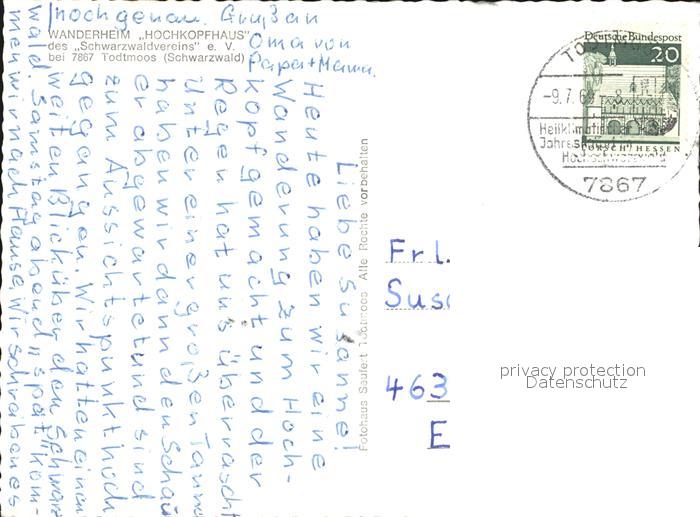 Liebe Susanne!
Heute haben wir eine
Wanderung zum Hoch-
kopf gemacht und der
Regen hat uns überrascht
Unter einer großen Tanne
haben wir dann den Schau
er abgewartet und sind
zum Aussichtspunkt hoch
gegangen. Wir hatten einen
weiten Blick über den Schwarz
wald. Samstag abend "spät" kom-
men wir nach Hause. Wir schreiben es
noch genau. Gruß an
Oma von
Papa + Mama.
WANDERHEIM „HOCHKOPFHAUS"
des „Schwarzwaldvereins" e. V.
bei 7867 Todtmoos (Schwarzwald)
Fotohaus Saufert Todtmoos Alle Rechte vorbehalten
Deutsche Bundespost
20
LORSCH/HESSEN
-9.7.6
Heilklimatischer
Jahres
Hochschwarzwald
7867
Frl.
Sus
463
E
privacy protection
Datenschutz